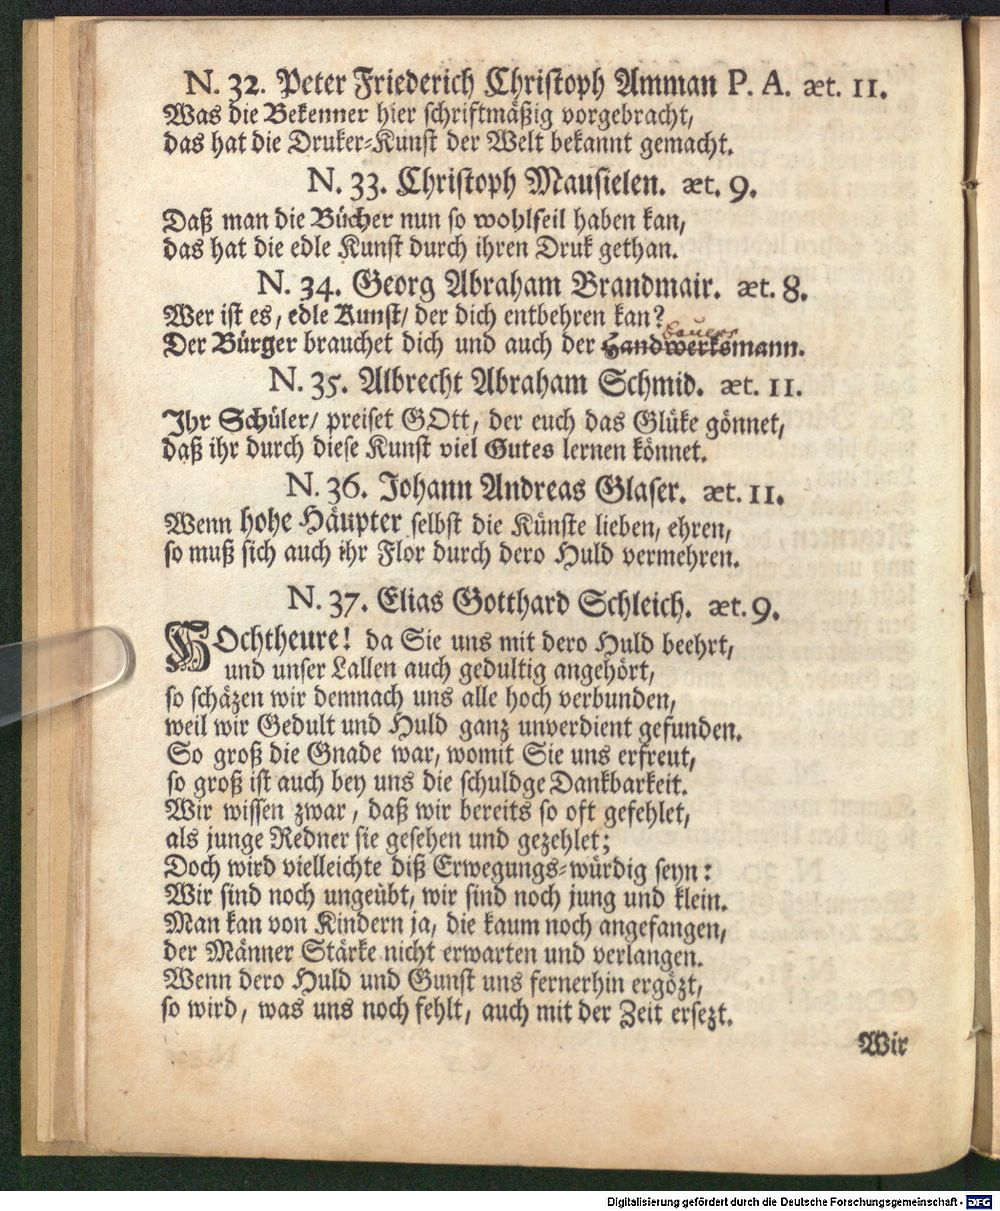 N. 32. Peter Friederich Christoph Amman P. A. æt. 11.
Was die Bekenner hier schriftmäßig vorgebracht,
das hat die Druker-Kunst der Welt bekannt gemacht.
N. 33. Christoph Mausielen. æt. 9.
Daß man die Bücher nun so wohlfeil haben kan,
das hat die edle Kunst durch ihren Druk gethan.
N. 34. Georg Abraham Brandmair. æt. 8.
Wer ist es, edle Kunst/ der dich entbehren kan?
Bauers
Der Bürger brauchet dich und auch der Handwerksmann.
N. 35. Albrecht Abraham Schmid. æt. 11.
Ihr Schüler/ preiset GOtt, der euch das Glüke gönnet,
daß ihr durch diese Kunst viel Gutes lernen könnet.
N. 36. Johann Andreas Glaser. æt. 11.
Wenn hohe Häupter selbst die Künste lieben, ehren,
so muß sich auch ihr Flor durch dero Huld vermehren.
N. 37. Elias Gotthard Schleich. æt. 9.
HOchtheure! da Sie uns mit dero Huld beehrt,
und unser Lallen auch gedultig angehört,
so schäzen wir demnach uns alle hoch verbunden,
weil wir Gedult und Huld ganz unverdient gefunden.
So groß die Gnade war, womit Sie uns erfreut,
so groß ist auch bey uns die schuldge Dankbarkeit.
Wir wissen zwar, daß wir bereits so oft gefehlet,
als junge Redner sie gesehen und gezehlet;
Doch wird vielleichte diß Erwegungs-würdig seyn:
Wir sind noch ungeübt, wir sind noch jung und klein.
Man kan von Kindern ja, die kaum noch angefangen,
der Männer Stärke nicht erwarten und verlangen.
Wenn dero Huld und Gunst uns fernerhin ergözt,
so wird, was uns noch fehlt, auch mit der Zeit ersezt.
Wir
Digitalisierung gefördert durch die Deutsche Forschungsgemeinschaft - DFG